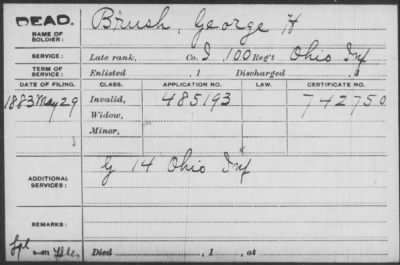 DEAD.
NAME OF SOLDIER:
Brush, George H
SERVICE:
Late rank, Co. I 100 Reg't Ohio Inf
TERM OF SERVICE:
Enlisted , 1 Discharged , 1
DATE OF FILING. CLASS. APPLICATION NO. LAW. CERTIFICATE NO.
1883 May 29 Invalid, 485193 742750
Widow,
Minor,
ADDITIONAL SERVICES:
G 14 Ohio Inf
REMARKS:
Died , 1 , at